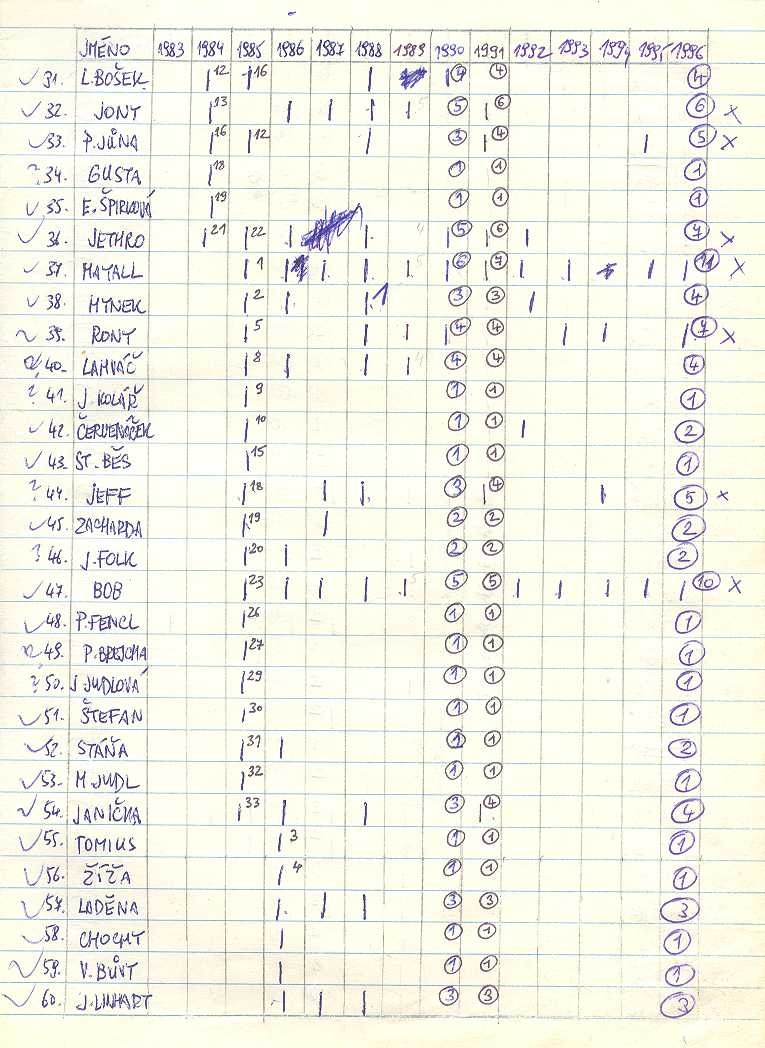 JMÉNO 1983 1984 1985 1986 1987 1988 1989 1990 1991 1992 1993 1994 1995 1996
✓ 31. L.BOŠEK |12 |16 | |4 4 4
✓ 32. JONY |13 | | | | 5 5 |6 6 x
✓ 33. P.JŮNA |16 |12 | 3 |4 | 5 x
? 34. GUSTA |18 1 1 1
✓ 35. E.ŠPIRKOVÁ |19 1 1 1
✓ 36. JETHRO |21 |22 | | 4 |5 |6 | 7 x
✓ 37. MAYALL |1 | | | | 5 |6 |7 | | | | 11 x
✓ 38. HYNEK |2 | | 3 3 | 4
✓ 39. RONY |5 | | |4 4 | | | 7 x
✓ 40. LAMVÁČ |8 | | | 4 4 4 4
? 41. J.KOLÁŘ |9 1 1 1
✓ 42. ČERVENÁČEK |10 1 1 | 2
✓ 43. ST.BĚS |15 1 1 1
? 44. JEFF |18 | | 3 |4 | 5 x
✓ 45. ZACHARDA |19 | 2 2 2
? 46. J.FOLK |20 | 2 2 2
✓ 47. BOB |23 | | | | 5 5 5 | | | | | 10 x
✓ 48. P.FENCL |26 1 1 1
49. P.BREJCHA |27 1 1 1
? 50. J.JUDLOVÁ |29 1 1 1
✓ 51. ŠTEFAN |30 1 1 1
✓ 52. STÁŇA |31 | 1 1 2
✓ 53. M.JUDL |32 1 1 1
✓ 54. JANIČKA |33 | | 3 |4 4
✓ 55. TOMIUS |3 1 1 1
✓ 56. ŽÍŽA |4 1 1 1
✓ 57. LADĚNA | | | 3 3 3
✓ 58. CHOCHT | 1 1 1
✓ 59. V.BŮVT | 1 1 1
✓ 60. J.LINHART | | | 3 3 3